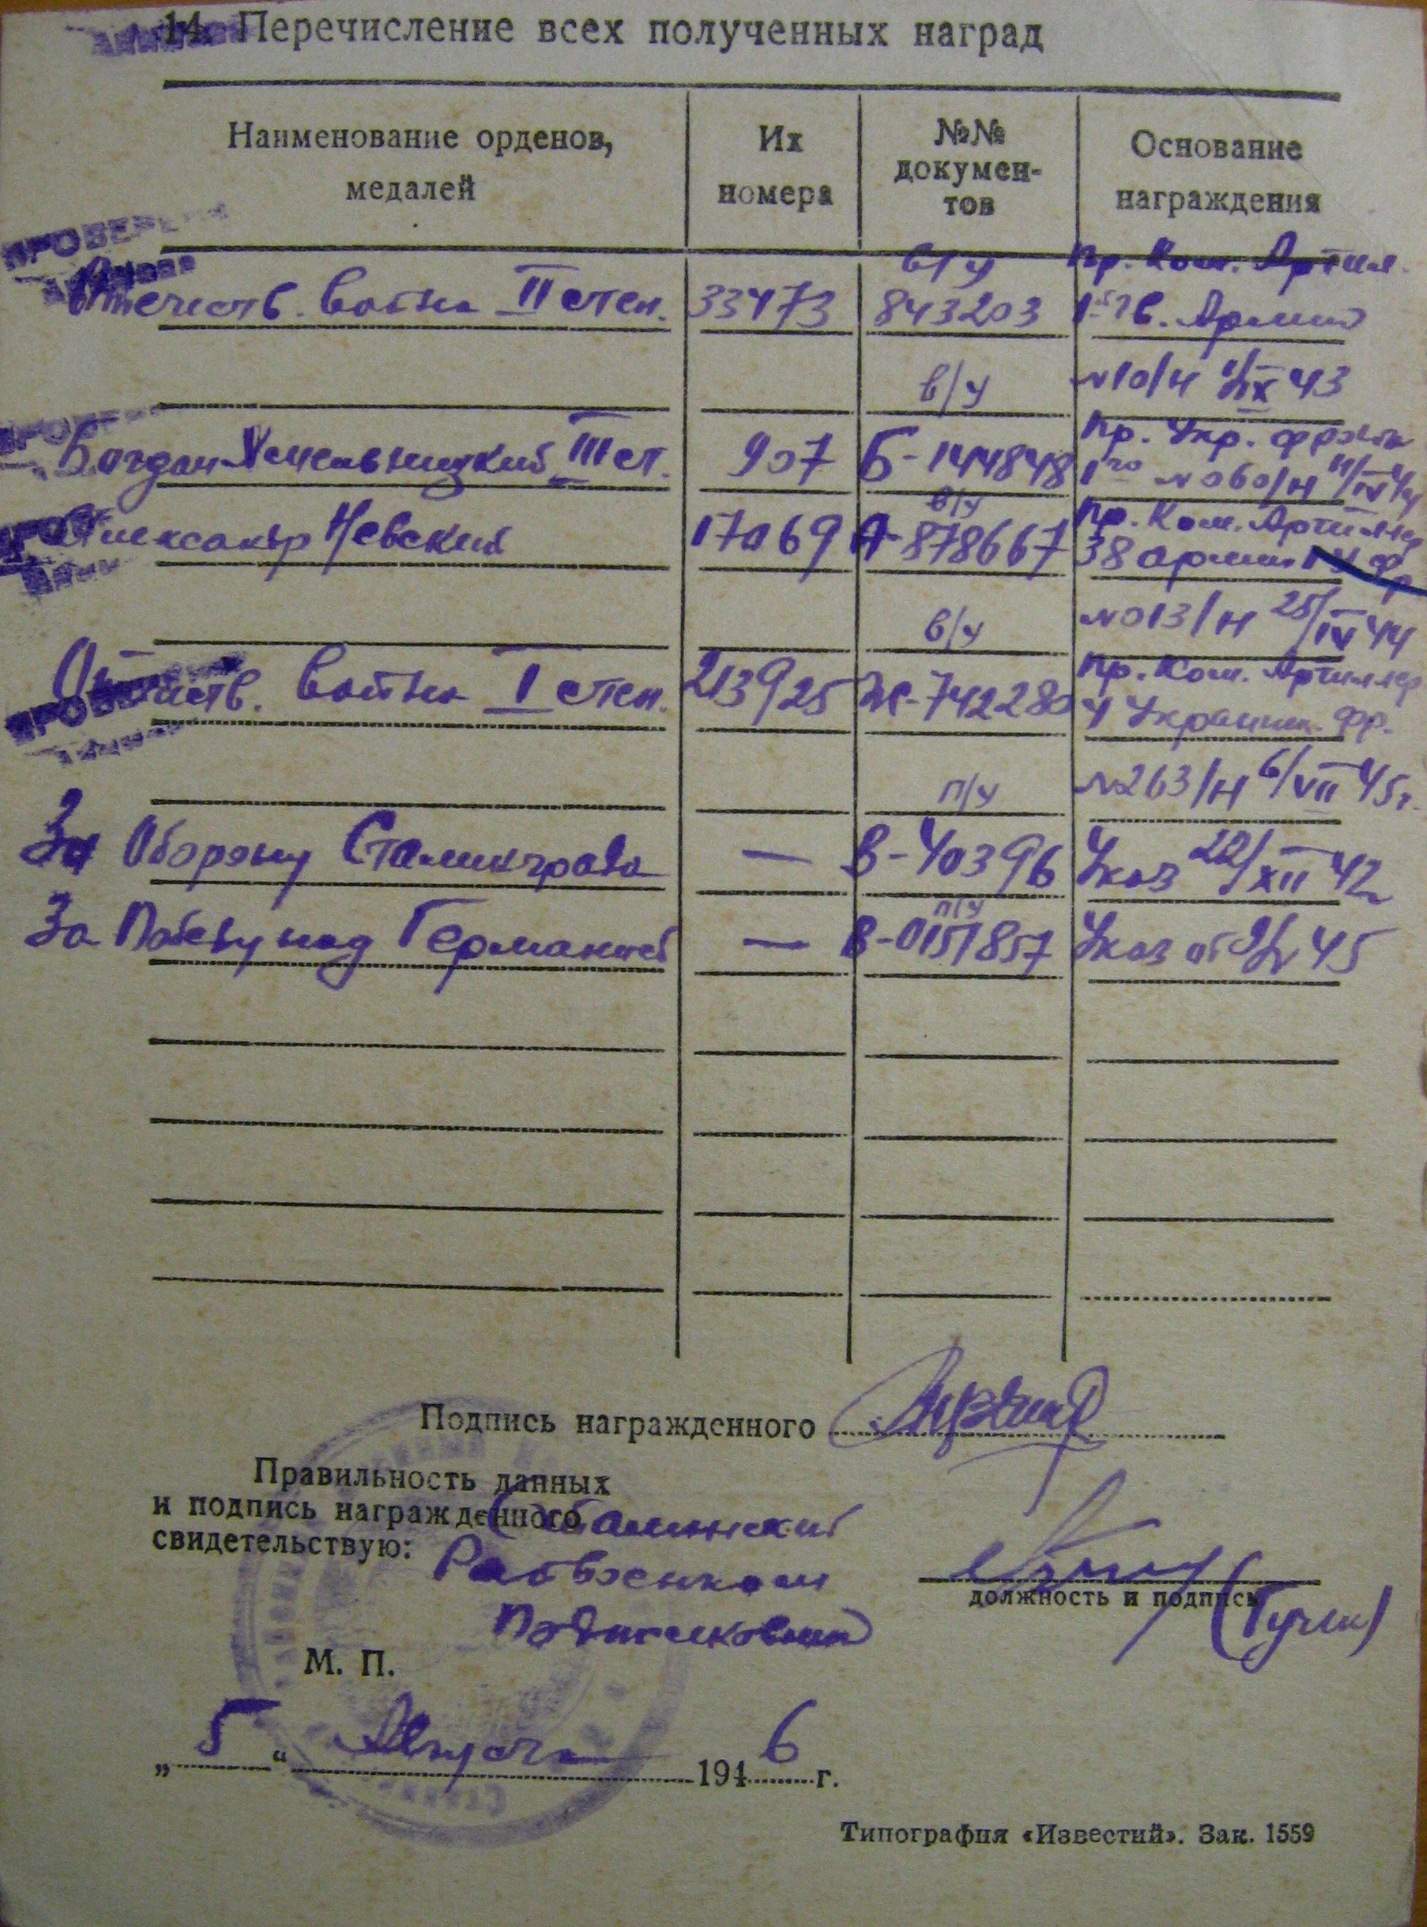 14. Перечисление всех полученных наград
Наименование орденов, медалей
Их номера
№№ документов
Основание награждения
ПРОВЕРЕНО
в/у Пр. Ком. Артил.
Отечеств. война II степ. 33473 843203 1й Гв. Армии
в/у №10/н 1/IX 43
Пр. Укр. фронта
Богдан Хмельницкий III ст. 907 Б-144848 1го №060/н 11/IV 44
в/у Пр. Ком. Артиллер
Александр Невский 17069 А-878667 38 армии 1 У фр
в/у №013/н 25/IV 44
Пр. Ком. Артиллер
Отечеств. война I степ. 213925 Ж-742280 4 Украинск. фр.
п/у №263/н 6/VII 45г.
За Оборону Сталинграда — В-40396 Указ 22/XII 42
п/у
За Победу над Германией — В-0151857 Указ от 9/V 45
Подпись награжденного
Правильность данных
и подпись награжденного
свидетельствую:
Райвоенком
Подполковник
должность и подпись
М. П.
„ 5 “ Августа 1946 г.
Типография «Известий». Зак. 1559